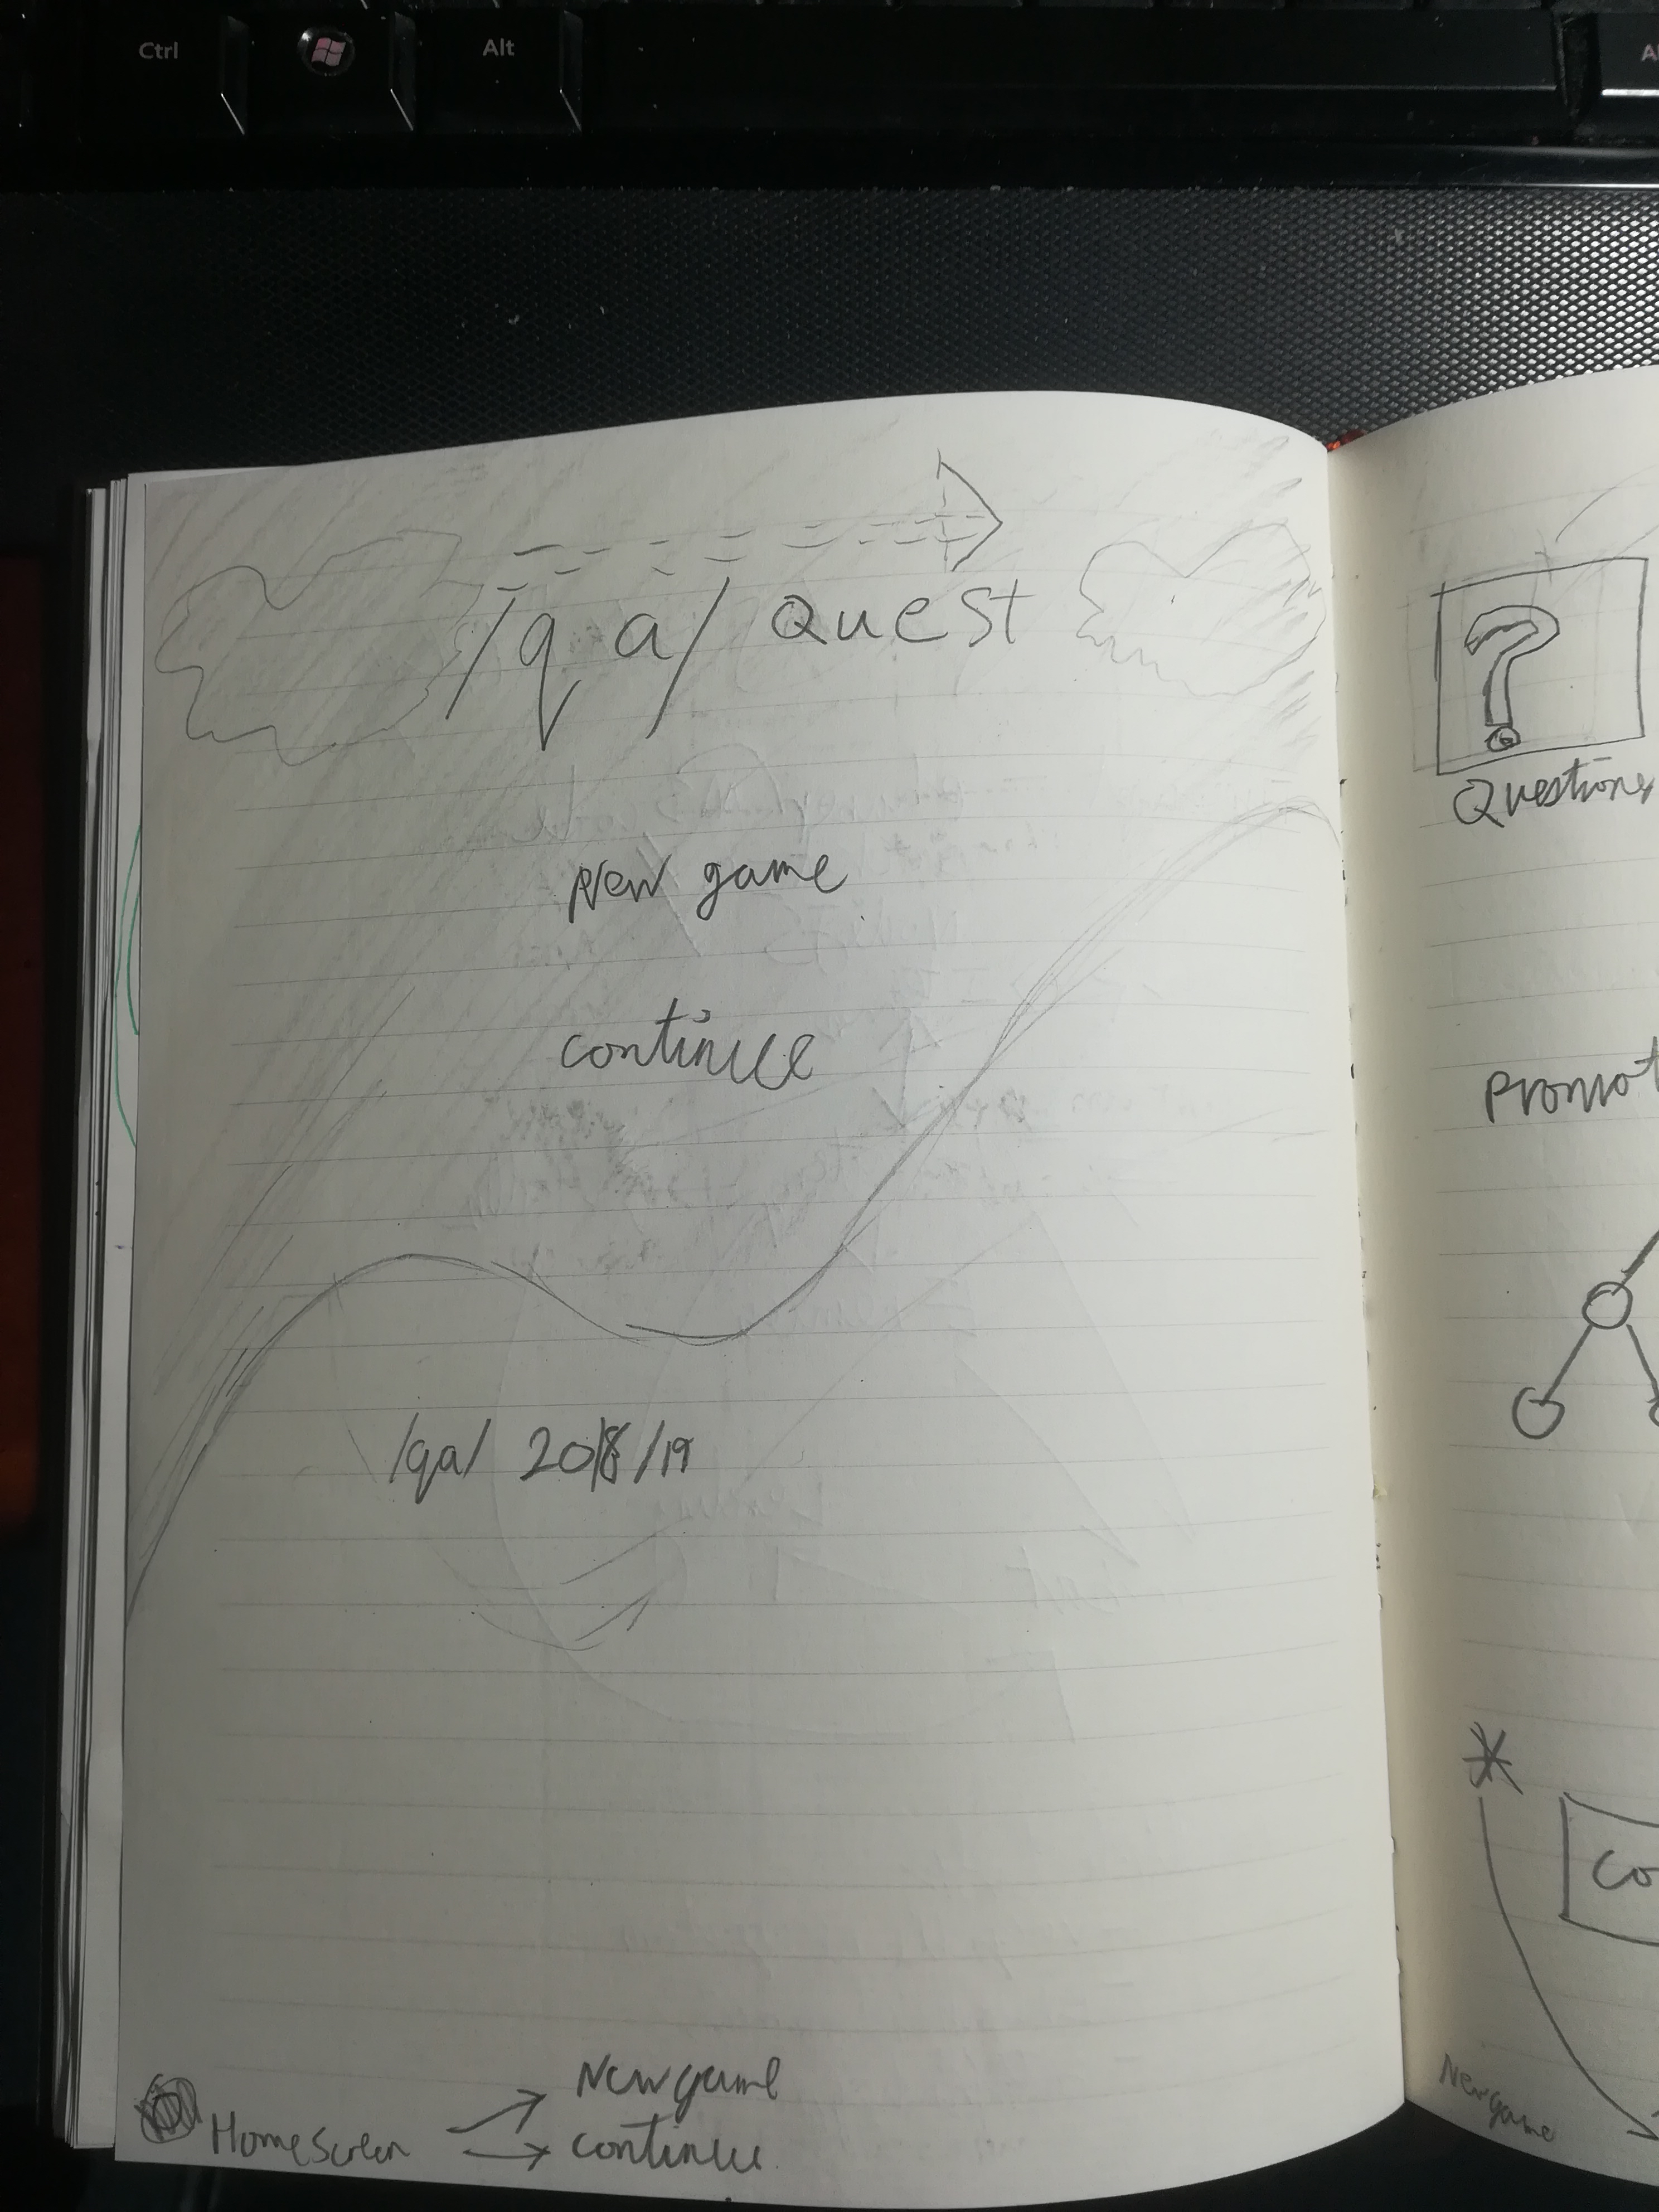 Ctrl
Alt
/qa/ Quest
New game
continue
/qa/ 2018/19
Homescreen
New game
continue
Questions
New game